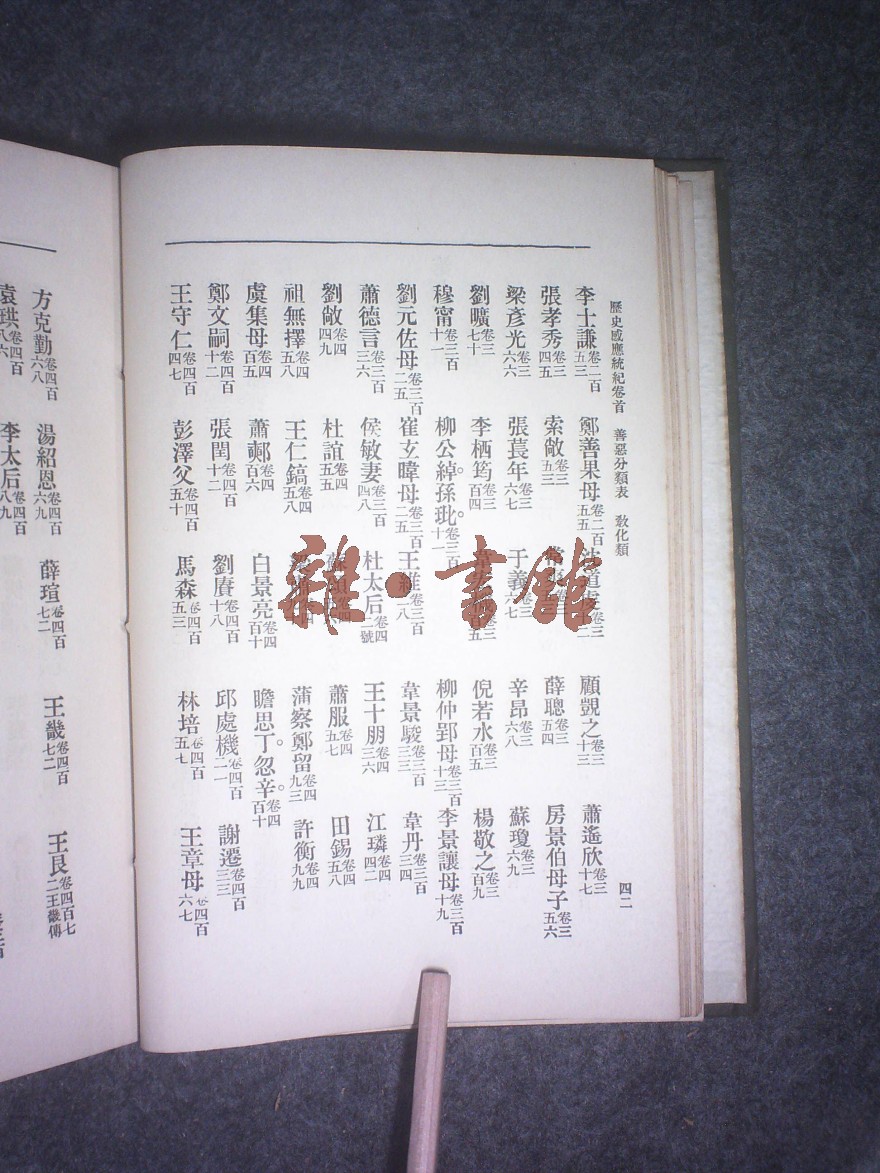 歷史感應統紀卷首 善惡分類表 敎化類 四二
李士謙卷二百五三 鄭善果母卷二百五五 顧覬之卷三十三 蕭遙欣卷三十七
張孝秀卷三四五 索敞卷三五三 薛聰卷三五四 房景伯母子卷三五六
梁彥光卷三六六 張萇年卷三六七 于義卷三六七 辛昂卷三六八 蘇瓊卷三六九
劉曠卷三七十 李栖筠卷三百四 倪若水卷三百五 楊敬之卷三百九
穆甯卷三百十一 柳公綽。孫玭。卷三百十一 柳仲郢母卷三百十三 李景讓母卷三百十九
劉元佐母卷三百二五 崔玄暐母卷三百二五 王維卷三百二八 韋景駿卷三百三三 韋丹卷三百三四
蕭德言卷三百三六 侯敏妻卷三百四八 杜太后卷四二號 王十朋卷四三六 江璘卷四四二
劉敞卷四四九 杜誼卷四五五 蕭服卷四五七 田錫卷四五八
祖無擇卷四五八 王仁鎬卷四五八 蒲察鄭留卷四九三 許衡卷四九九
虞集母卷四百五 蕭㪺卷四百六 白景亮卷四百十 瞻思丁。忽辛。卷四百十
鄭文嗣卷四百十二 張閏卷四百十二 劉賡卷四百十八 邱處機卷四百二一 謝遷卷四百三三
王守仁卷四百四七 彭澤父卷四百五十 馬森卷四百五三 林培卷四百五七 王章母卷四百六七
方克勤卷四百六八 湯紹恩卷四百六九 薛瑄卷四百七二 王畿卷四百七二 王艮卷四百七二王畿傳
袁珙卷四百八六 李太后卷四百八九